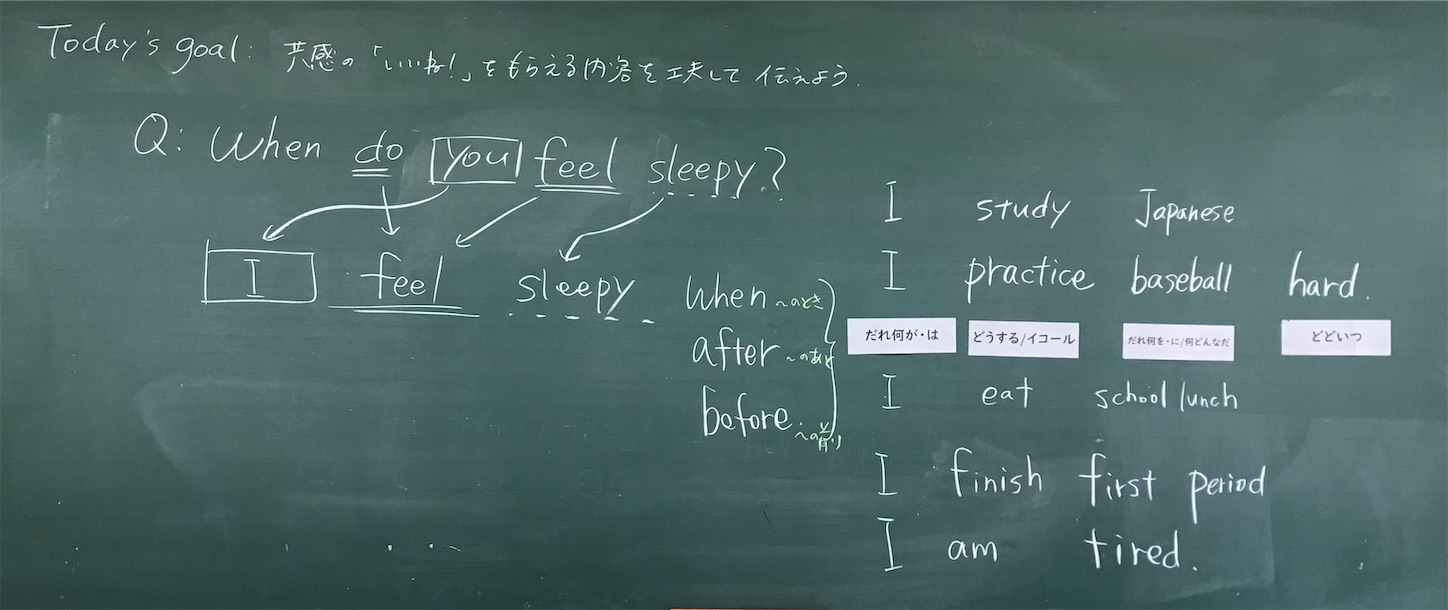 Today's goal: 共感の「いいね!」をもらえる内容を工夫して伝えよう.
Q: When do you feel sleepy?
I feel sleepy
when ~のとき
after ~のあと
before ~の前
I study Japanese
I practice baseball hard.
だれ何が・は どうする/イコール だれ何を・に/何どんなだ どどいつ
I eat school lunch
I finish first period
I am tired.